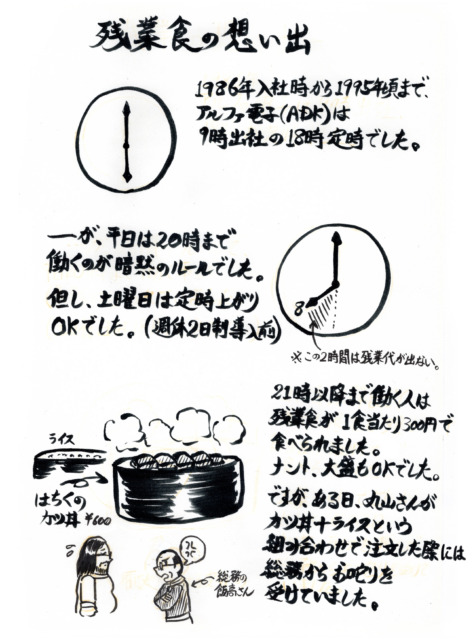 残業食の想い出
1986年入社時から1995年頃まで、
アルファ電子(ADK)は
9時出社の18時定時でした。
一が、平日は20時まで
働くのが暗黙のルールでした。
但し、土曜日は定時上がり
OKでした。(週休2日制導入前)
8
※この2時間は残業代が出ない。
21時以降まで働く人は
残業食が1食当たり300円で
食べられました。
ナント、大盛もOKでした。
ですが、ある日、丸山さんが
カツ丼+ライスという
組み合わせで注文した際には
総務からお叱りを
受けていました。
ライス
はちくの
カツ丼 ¥600
コレコレ
総務の
飯高さん